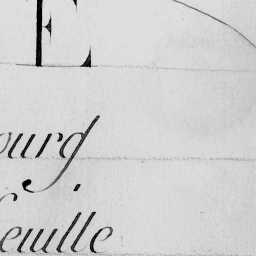 E
ourg
euille